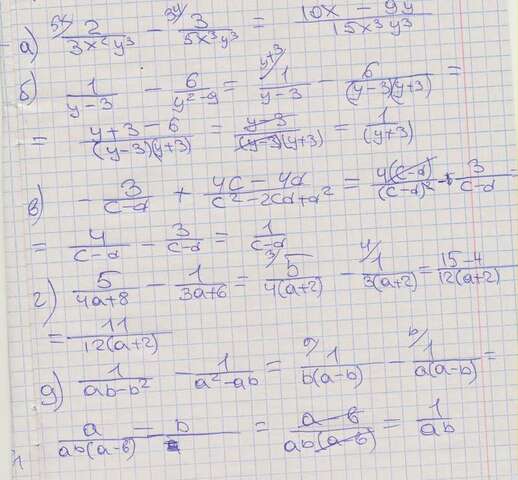 а) 5x/ 2/(3x²y³) - 3y/ 3/(5x³y³) = (10x - 9y)/(15x³y³)
б) 1/(y-3) - 6/(y²-9) = y+3/ 1/(y-3) - 6/((y-3)(y+3)) =
= (y+3-6)/((y-3)(y+3)) = (y-3)/((y-3)(y+3)) = 1/(y+3)
в) - 3/(c-d) + (4c-4d)/(c²-2cd+d²) = 4(c-d)/(c-d)² - 3/(c-d) =
= 4/(c-d) - 3/(c-d) = 1/(c-d)
г) 5/(4a+8) - 1/(3a+6) = 3/ 5/(4(a+2)) - 4/ 1/(3(a+2)) = (15-4)/(12(a+2))
= 11/(12(a+2))
д) 1/(ab-b²) - 1/(a²-ab) = a/ 1/(b(a-b)) - b/ 1/(a(a-b)) =
(a - b)/(ab(a-b)) = (a-b)/(ab(a-b)) = 1/(ab)